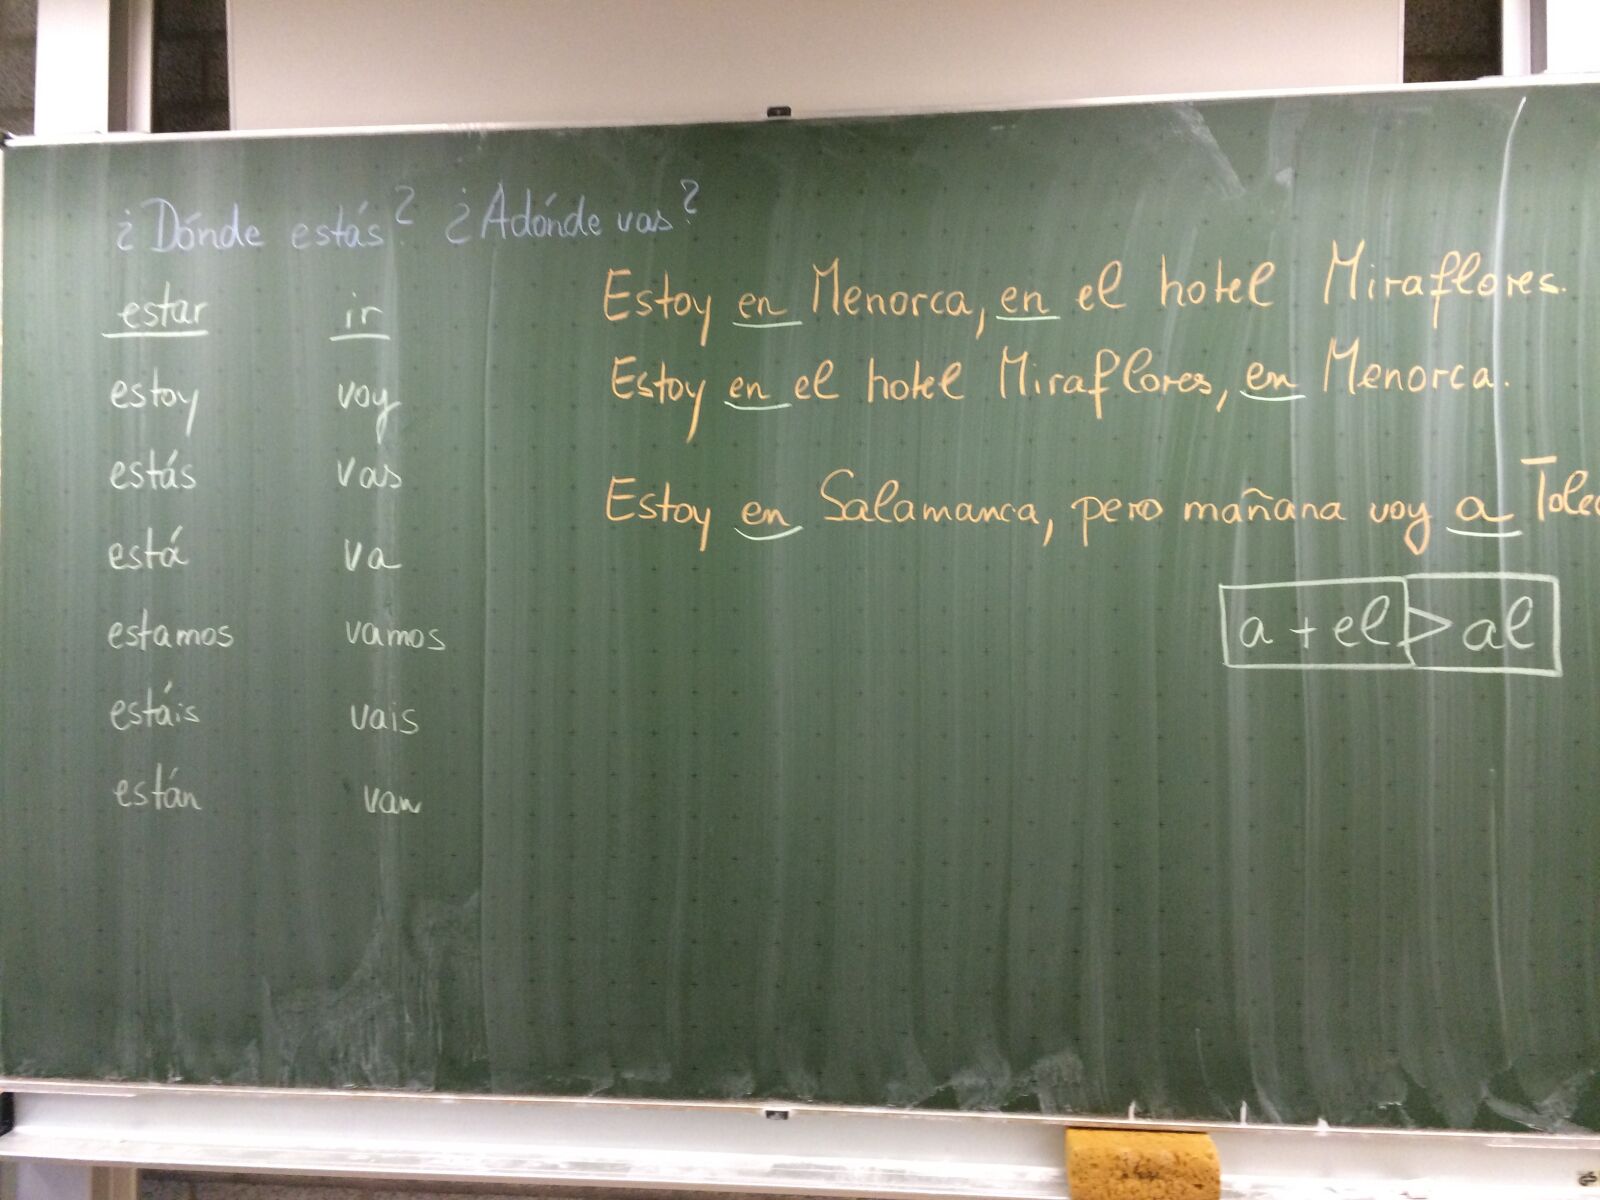 ¿Dónde estás? ¿Adónde vas?
estar ir
estoy voy
estás vas
está va
estamos vamos
estáis vais
están van
Estoy en Menorca, en el hotel Miraflores.
Estoy en el hotel Miraflores, en Menorca.
Estoy en Salamanca, pero mañana voy a
a + el > al